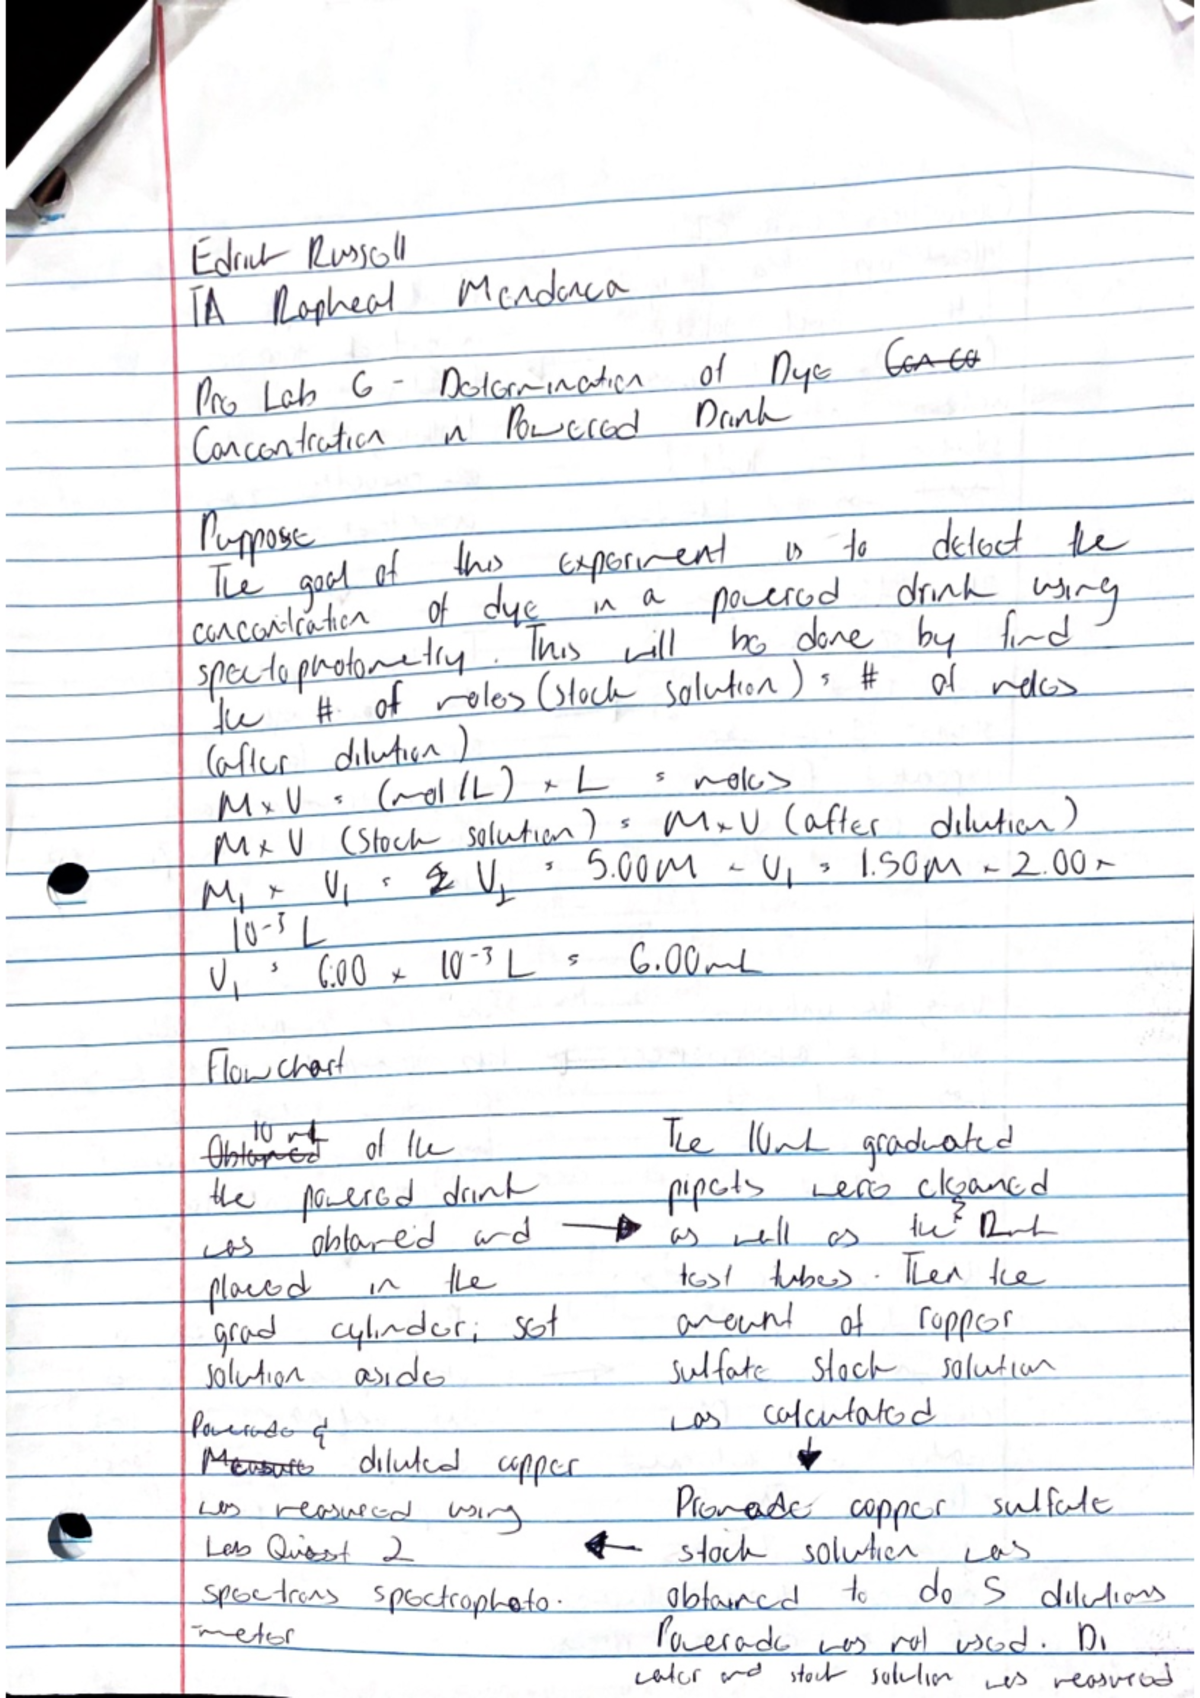 Edrick Russell
TA Rapheal Mendonca
Pre Lab 6 - Determination of Dye
Concentration in Powered Drink
Purppose
The goal of this experiment is to detect the
concentration of dye in a powered drink using
spectophotometry. This will be done by find
the # of moles (stock solution) = # of moles
(after dilution)
M × V = (mol/L) × L = moles
M × V (Stock solution) = M × V (after dilution)
M₁ × V₁ = V₂ = 5.00M × V₁ = 1.50M × 2.00 ×
10⁻³ L
V₁ = 6.00 × 10⁻³ L = 6.00mL
Flow chart
10 mL
Obtained of the
the powered drink
was obtained and
placed in the
grad cylinder; set
solution aside
The 10mL graduated
pipets were cleaned
as well as the
test tubes. Then the
amount of copper
sulfate stock solution
was calculated
Premade copper sulfate
stock solution was
obtained to do 5 dilutions
Powerade was not used. DI
water and stock solution was measured
Powerade &
Measure diluted copper
was measured using
Lab Quest 2
spectrans spectrophoto-
-meter